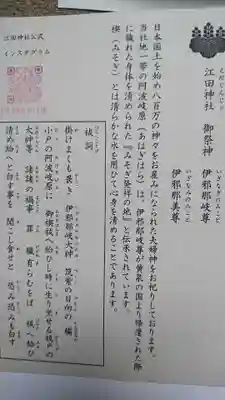 江田神社　御祭神
えだじんじゃ
いざなぎのみこと
伊邪那岐尊
いざなみのみこと
伊邪那美尊
日本国土を始め八百万の神々をお産みになられた夫婦神をお祀りしております。
当社地一帯の阿波岐原（あはぎはら）は、伊邪那岐尊が黄泉の国より帰還された際
に穢れた身体を清められた『みそぎ発祥の地』と伝承されています。
禊（みそぎ）とは清らかな水を用ひて心身を清めることであります。
祓詞
掛けまくも畏き　伊邪那岐大神　筑紫の日向の　橘
小戸の阿波岐原に　御禊祓へ給ひし時に生り坐せる祓戸の
大神等　諸諸の禍事　罪　穢有らむをば　祓へ給ひ
清め給へと白す事を　聞こし食せと　恐み恐みも白す
江田神社公式
インスタグラム